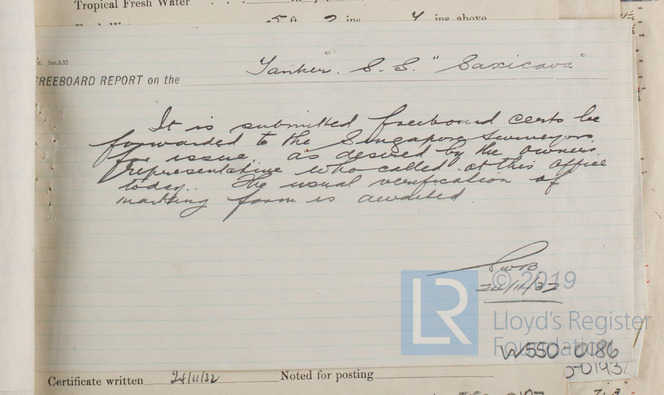 Tropical Fresh Water
5 ft 2 ins 4 ins above
FREEBOARD REPORT on the Tanker. S.S. "Saxicava"
It is submitted freeboard certs be
forwarded to the Singapore Surveyors
for issue. as desired by the owners
representative who called at this office
today. The usual verification of
marking form is awaited.
24/11/32
LR
© 2019
Lloyd's Register
Foundation
W550-0186
Certificate written 24/11/32 Noted for posting